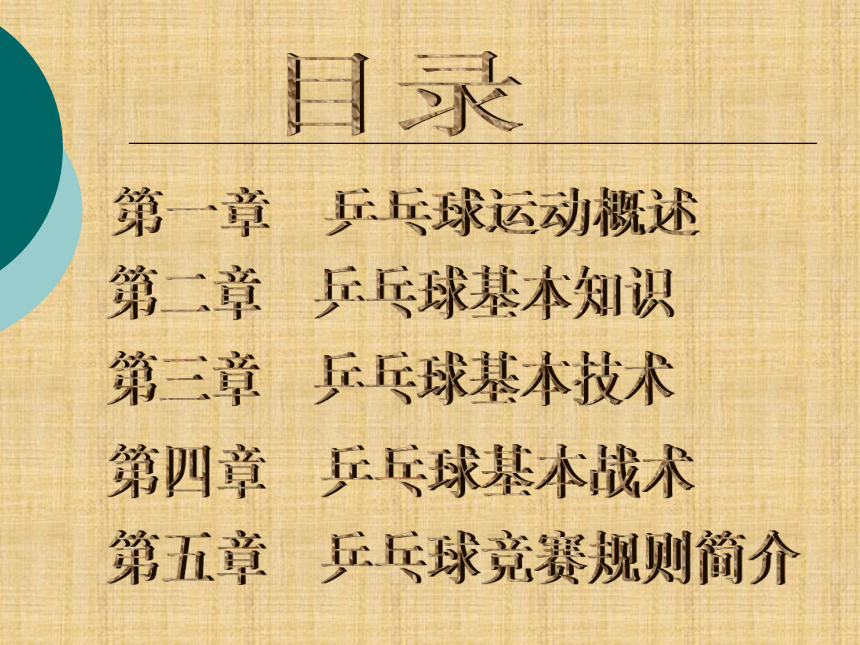 目录
第一章 乒乓球运动概述
第二章 乒乓球基本知识
第三章 乒乓球基本技术
第四章 乒乓球基本战术
第五章 乒乓球竞赛规则简介